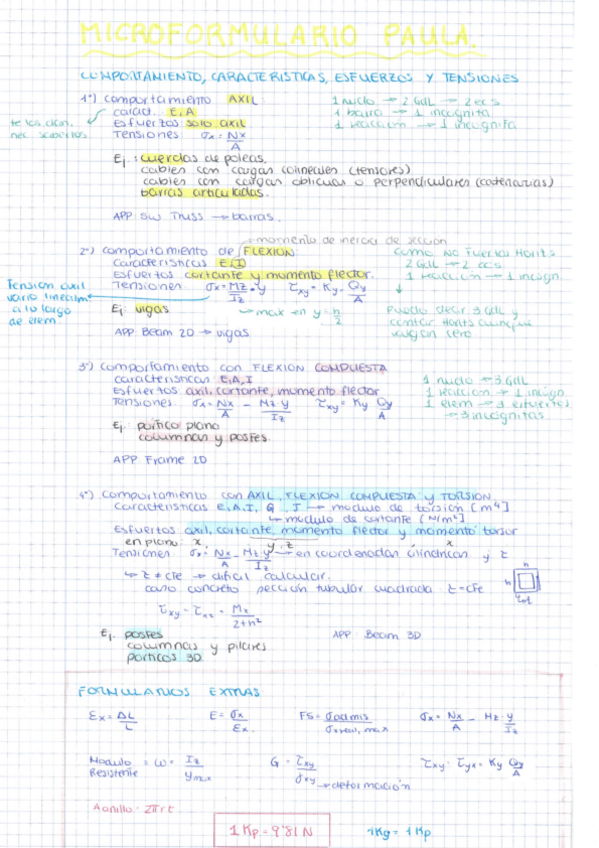 MICROFORMULARIO PAULA.
COMPORTAMIENTO, CARACTERISTICAS, ESFUERZOS Y TENSIONES
1º) comportamiento AXIL
caract. E, A
Esfuerzos solo axil
Tensiones σx = Nx/A
te los dan,
nec. saberlos
1 nudo → 2 Gdl → 2 ecs
1 barra → 1 incognita
1 reacción → 1 incógnita
Ej.: cuerdas de poleas.
cables con cargas colineales (tensores)
cables con cargas oblicuas o perpendiculares (catenarias)
barras articuladas.
APP: SW Truss → barras.
2º) comportamiento de FLEXION
→ momento de inercia de seccion
Caracteristicas E, I
Esfuertos cortante y momento flector.
Tensiones σx = Mz/Iz · y τxy = Ky · Qy/A
→ max en y = h/2
Tension axil
varia linealm
a lo largo
de elem.
como NO Fuerza Horits
2 Gdl → 2 ecs
1 reacción → 1 incógn.
Puedo decir 3 Gdl y
contar Horits aunque
valgan cero
Ej: vigas
APP: Beam 2D → vigas
3º) comportamiento con FLEXION COMPUESTA
caracteristicas E, A, I
Esfuertos axil, cortante, momento flector
Tensiones σx = Nx/A - Mz·y/Iz τxy = Ky Qy/A
1 nudo → 3 Gdl
1 reacción → 1 incógn
1 elem → 3 esfuertos
→ 3 incógnitas
Ej: portico plano
columnas y postes
APP Frame 2D
4º) comportamiento con AXIL, FLEXION COMPUESTA y TORSION
Caracteristicas E, A, I, G, J → modulo de torsión [m4]
→ modulo de cortante [N/m²]
Esfuertos axil, cortante, momento flector y momento torsor
en plano: x y, z x
Tensiones σx = Nx/A - Mz·y/Iz → en coordenadas cilindricas y τ
→ τ ≠ cte → dificil calcular.
caso concreto seccion tubular cuadrada τ = cte
τxy = τxz = Mx/2th²
Ej. postes
columnas y pilares
porticos 3D
APP: Beam 3D
FORMULARIOS EXTRAS
εx = ΔL/L E = σx/εx FS = σadmis/σxreal, max σx = Nx/A - Mz·y/Iz
Modulo Resistente = ω = Iz/ymax G = τxy/γxy → deformación τxy = τyx = Ky Qy/A
Anillo: 2πrt
1 Kp = 9'81 N
1Kg = 1 Kp